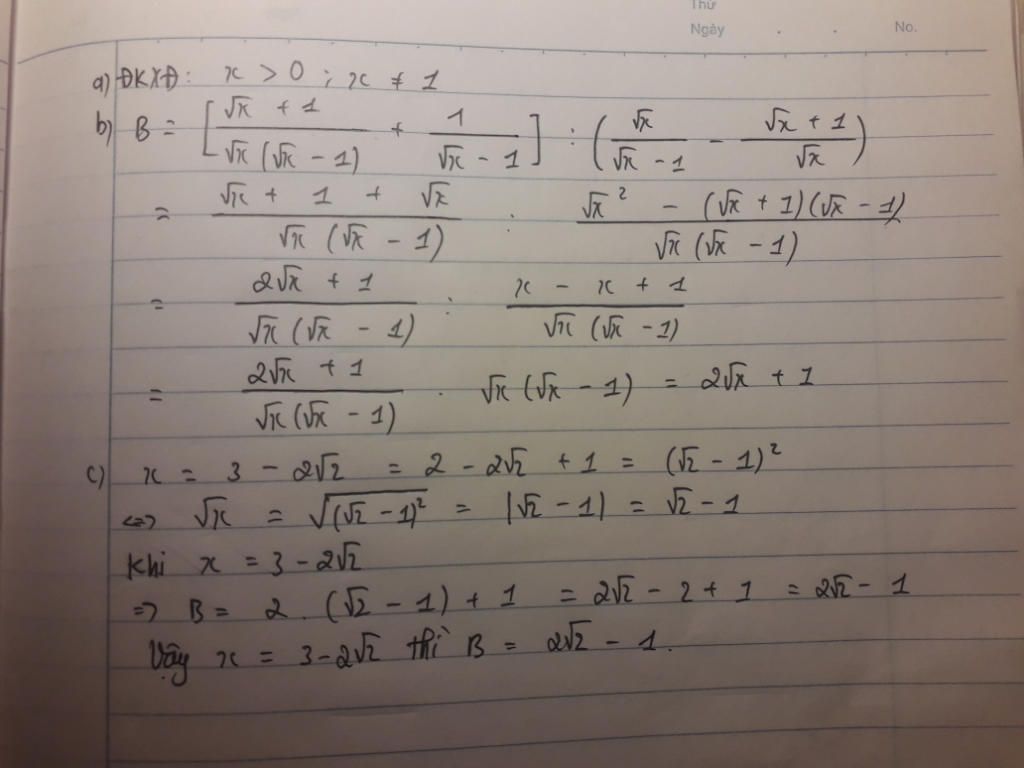 Thứ
Ngày . . No.
a) ĐKXĐ: x > 0 ; x ≠ 1
b) B = [(√x + 1)/(√x (√x - 1)) + 1/(√x - 1)] : (√x/(√x - 1) - (√x + 1)/√x)
= (√x + 1 + √x)/(√x (√x - 1)) : (√x² - (√x + 1)(√x - 1))/(√x (√x - 1))
= (2√x + 1)/(√x (√x - 1)) : (x - x + 1)/(√x (√x - 1))
= (2√x + 1)/(√x (√x - 1)) . √x (√x - 1) = 2√x + 1
c) x = 3 - 2√2 = 2 - 2√2 + 1 = (√2 - 1)²
<=> √x = √((√2 - 1)²) = |√2 - 1| = √2 - 1
Khi x = 3 - 2√2
=> B = 2 . (√2 - 1) + 1 = 2√2 - 2 + 1 = 2√2 - 1
Vậy x = 3 - 2√2 thì B = 2√2 - 1.